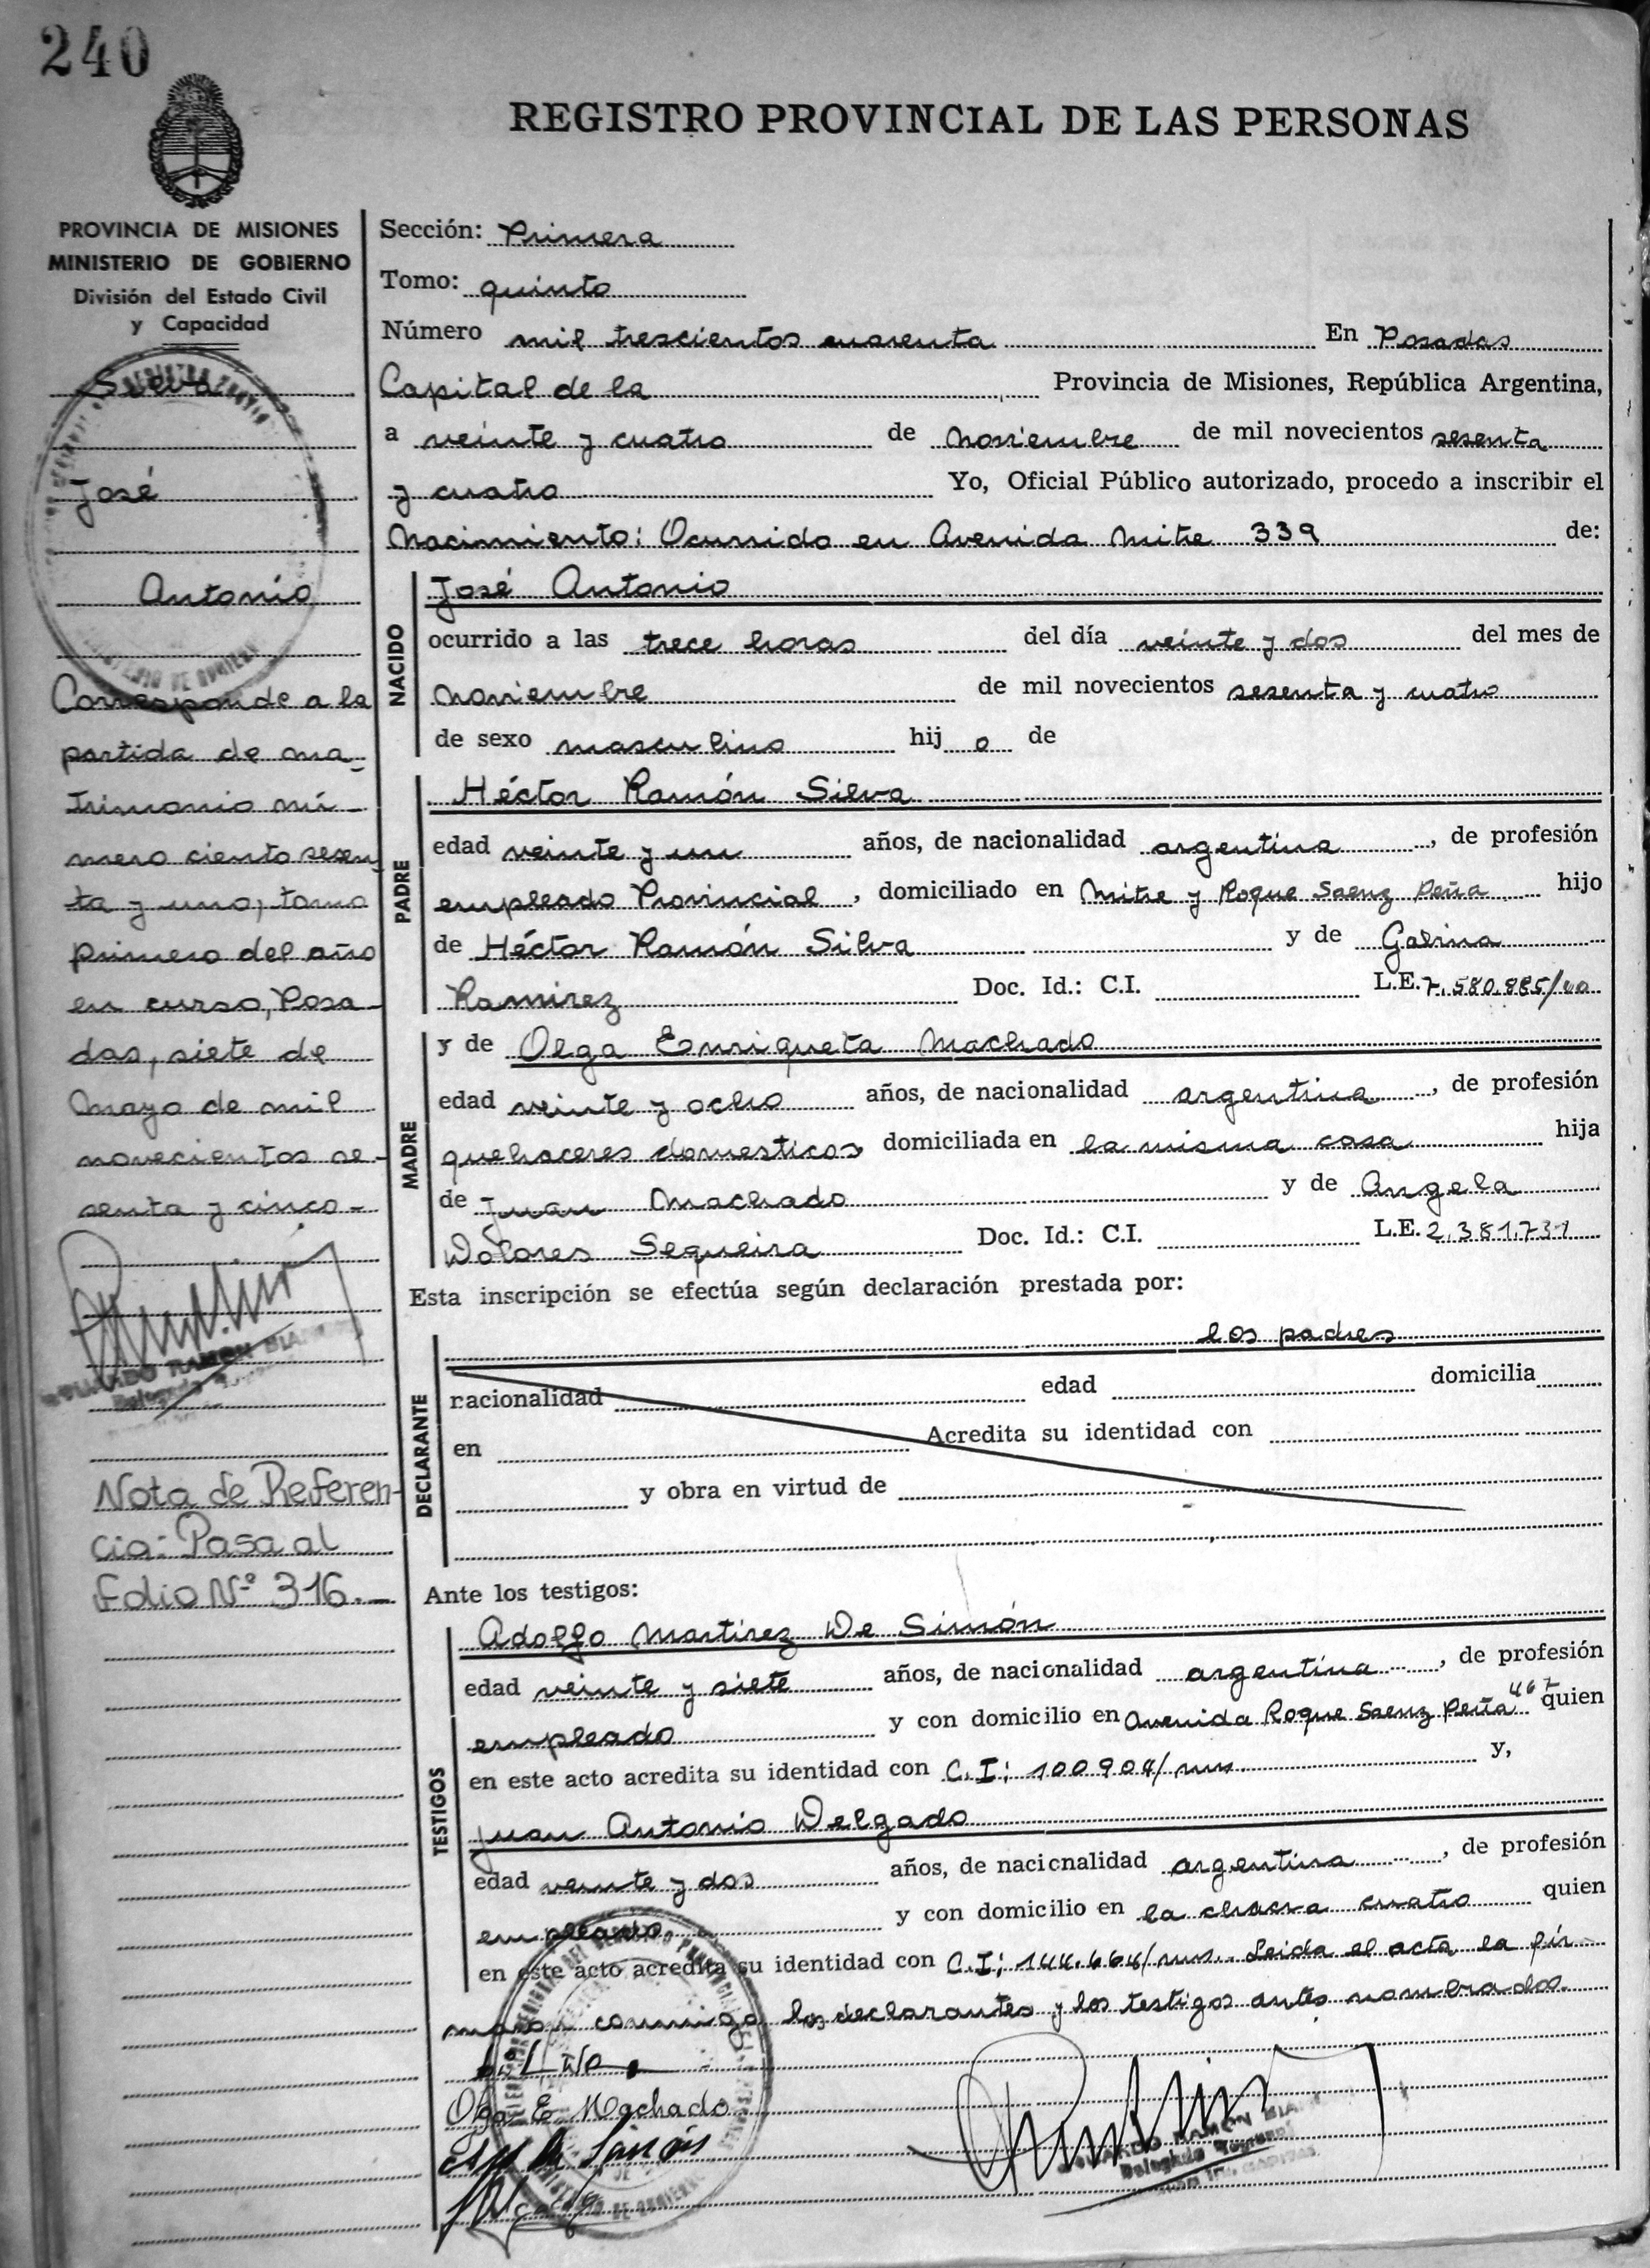 240
REGISTRO PROVINCIAL DE LAS PERSONAS
PROVINCIA DE MISIONES
MINISTERIO DE GOBIERNO
División del Estado Civil
y Capacidad
Silva
José
Antonio
Corresponde a la
partida de ma-
trimonio nú-
mero ciento sesen
ta y uno, tomo
primero del año
en curso, Posa-
das, siete de
Mayo de mil
novecientos se-
senta y cinco-
EDUARDO RAMON
Nota de Referen-
cia: Pasa al
Folio Nº 316.-
Sección: Primera
Tomo: quinto
Número mil trescientos cuarenta En Posadas
Capital de la Provincia de Misiones, República Argentina,
a veinte y cuatro de Noviembre de mil novecientos sesenta
y cuatro Yo, Oficial Público autorizado, procedo a inscribir el
Nacimiento: Ocurrido en Avenida Mitre 339 de:
NACIDO
José Antonio
ocurrido a las trece horas del día veinte y dos del mes de
Noviembre de mil novecientos sesenta y cuatro
de sexo masculino hij o de
PADRE
Héctor Ramón Silva
edad veinte y un años, de nacionalidad argentina, de profesión
empleado Provincial, domiciliado en Mitre y Roque Saenz Peña hijo
de Héctor Ramón Silva y de Galina
Ramirez Doc. Id.: C.I. L.E. 7.580.885/
MADRE
y de Olga Enriqueta Machado
edad veinte y ocho años, de nacionalidad argentina, de profesión
quehaceres domesticos, domiciliada en la misma casa hija
de Juan Machado y de Angela
Dolores Sequeira Doc. Id.: C.I. L.E. 2.381.731
Esta inscripción se efectúa según declaración prestada por:
DECLARANTE
los padres
nacionalidad edad domicilia
en Acredita su identidad con
y obra en virtud de
Ante los testigos:
TESTIGOS
Adolfo Martirez De Simón
edad veinte y siete años, de nacionalidad argentina, de profesión
empleado y con domicilio en Avenida Roque Saenz Peña 467 quien
en este acto acredita su identidad con C.I: 100904/mns. y,
Juan Antonio Delgado
edad veinte y dos años, de nacionalidad argentina, de profesión
empleado y con domicilio en la chacra cuatro quien
en este acto acredita su identidad con C.I: 144.464/mns. Leida el acta la fir-
maron conmigo los declarantes y los testigos antes nombrados.
Olga E. Machado
EDUARDO RAMON
Delegado